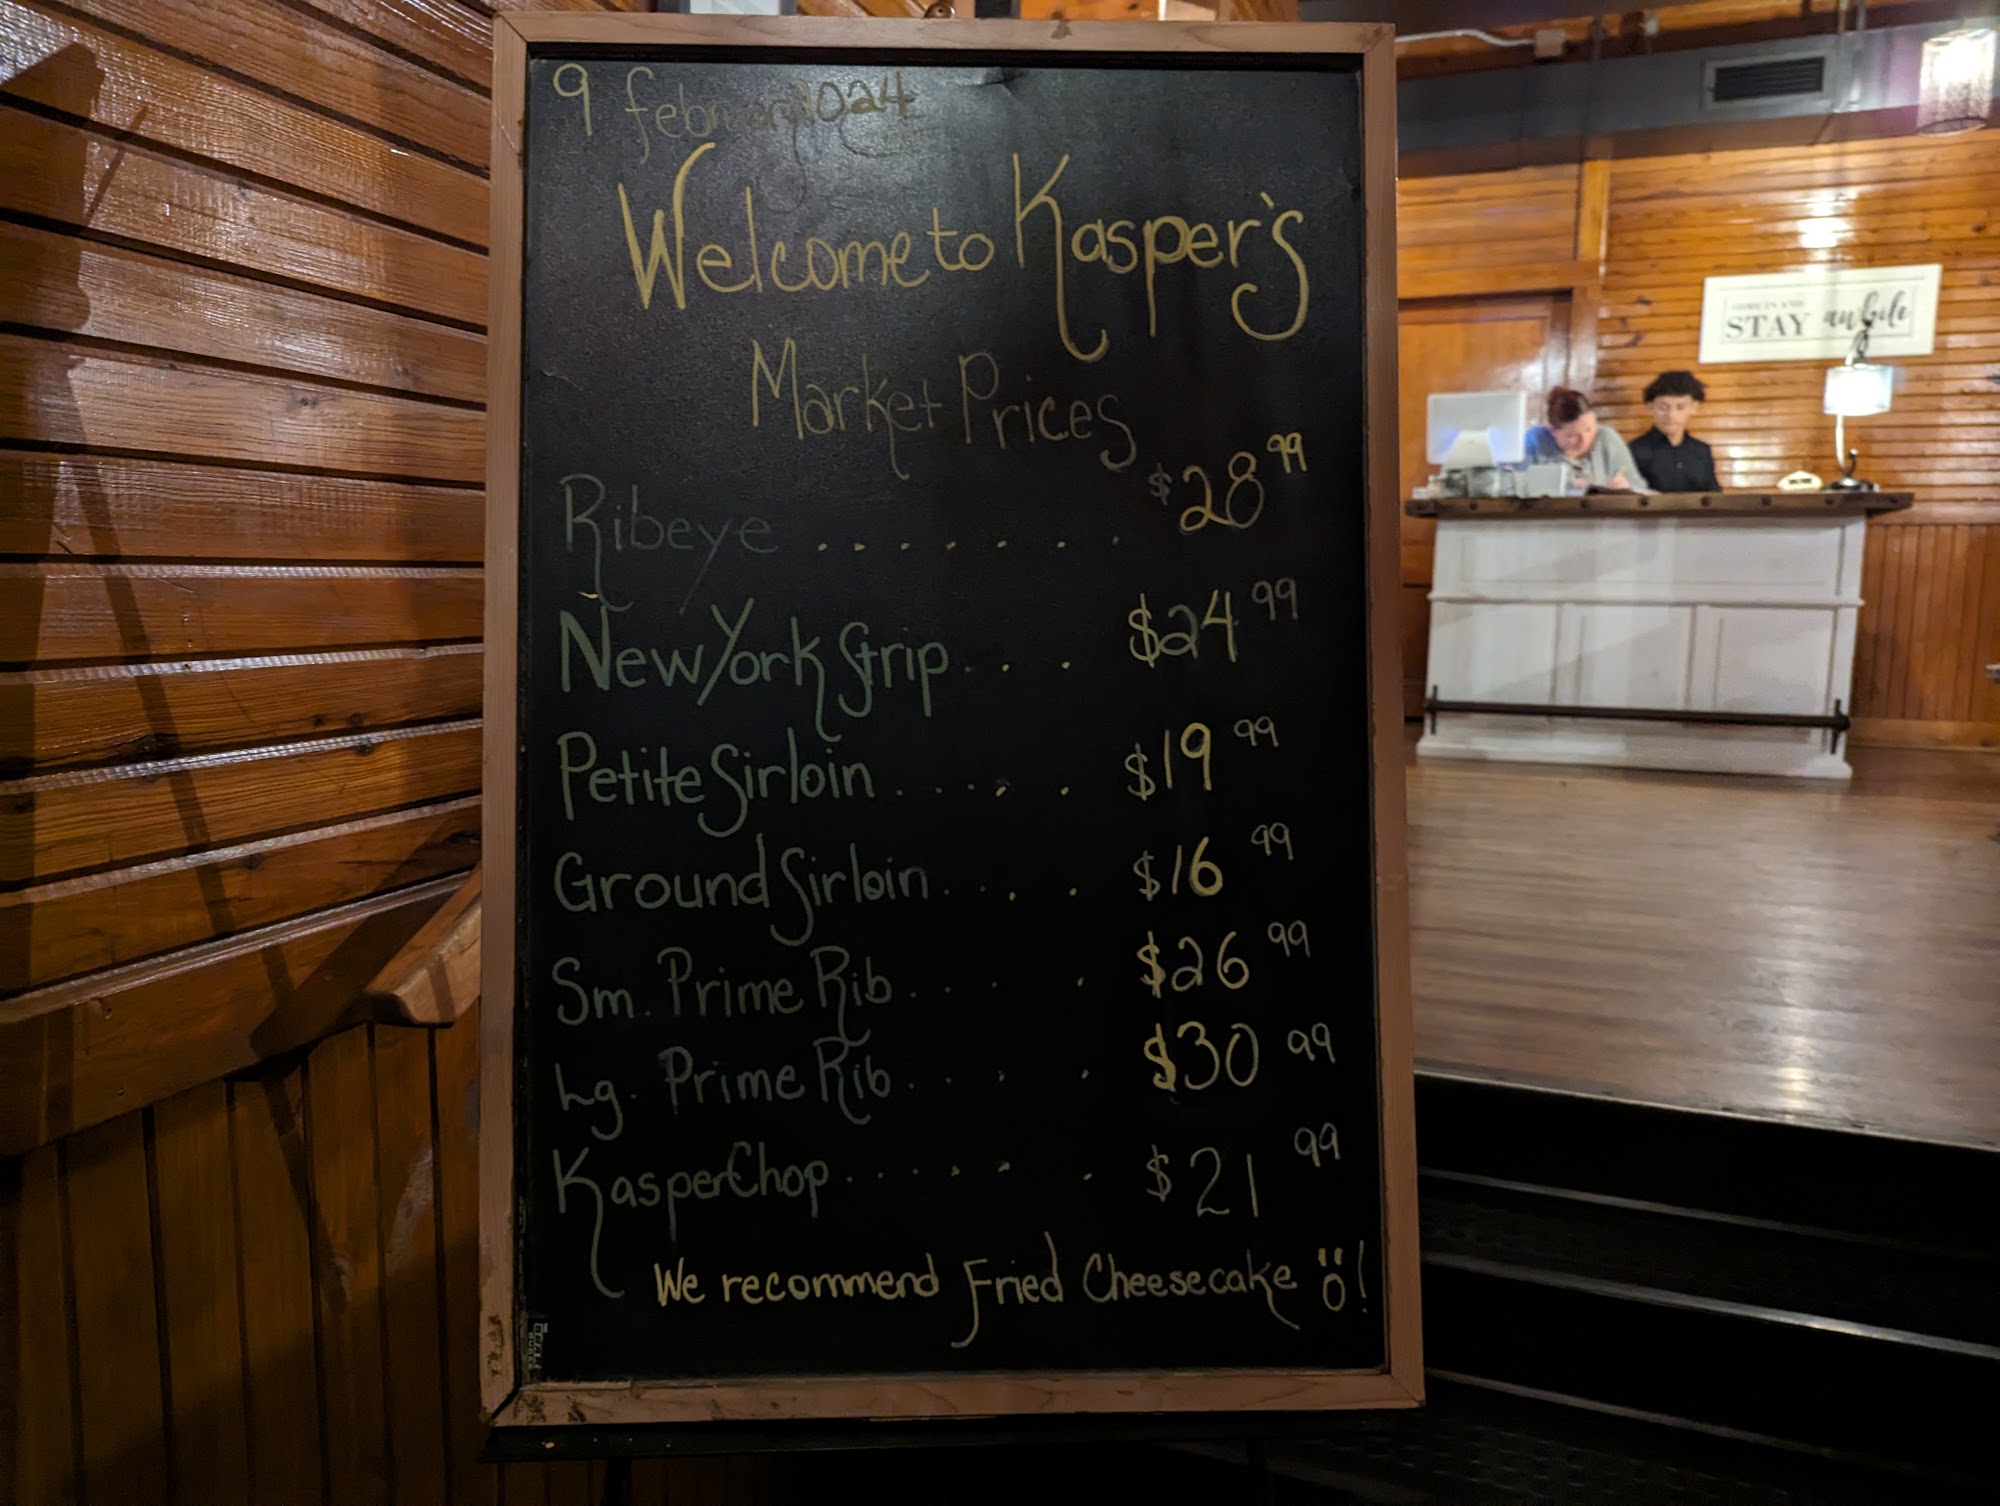 9 february 2024
Welcome to Kasper's
Market Prices
Ribeye ........ $28.99
New York Strip .... $24.99
Petite Sirloin ...... $19.99
Ground Sirloin .... $16.99
Sm. Prime Rib .... $26.99
Lg. Prime Rib .... $30.99
Kasper Chop ....... $21.99
We recommend Fried Cheesecake !
STAY awhile